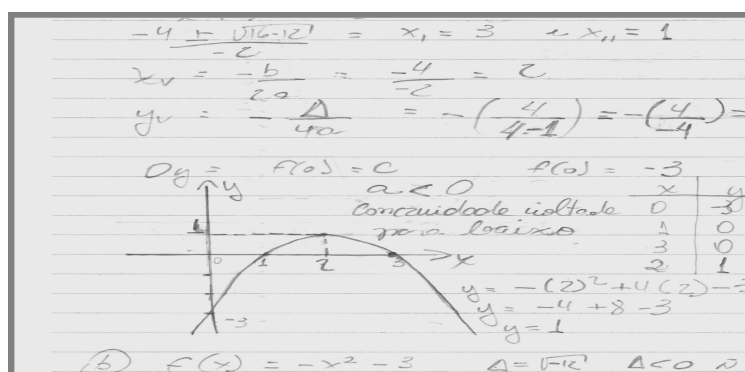 -4 ± √16-12 / -2 = x₁ = 3 e x₁₁ = 1
xᵥ = -b/2a = -4/-2 = 2
yᵥ = -Δ/4a = -(4/4-1) = -(4/-4) =
Oy = f(0) = C f(0) = -3
y
a < 0
x y
concavidade voltada 0 -3
para baixo 1 0
3 0
2 1
1
0 1 2 3 x
-3
y = -(2)² + 4(2) - 3
y = -4 + 8 - 3
y = 1
b) f(x) = -x² - 3 Δ = √-12 Δ < 0